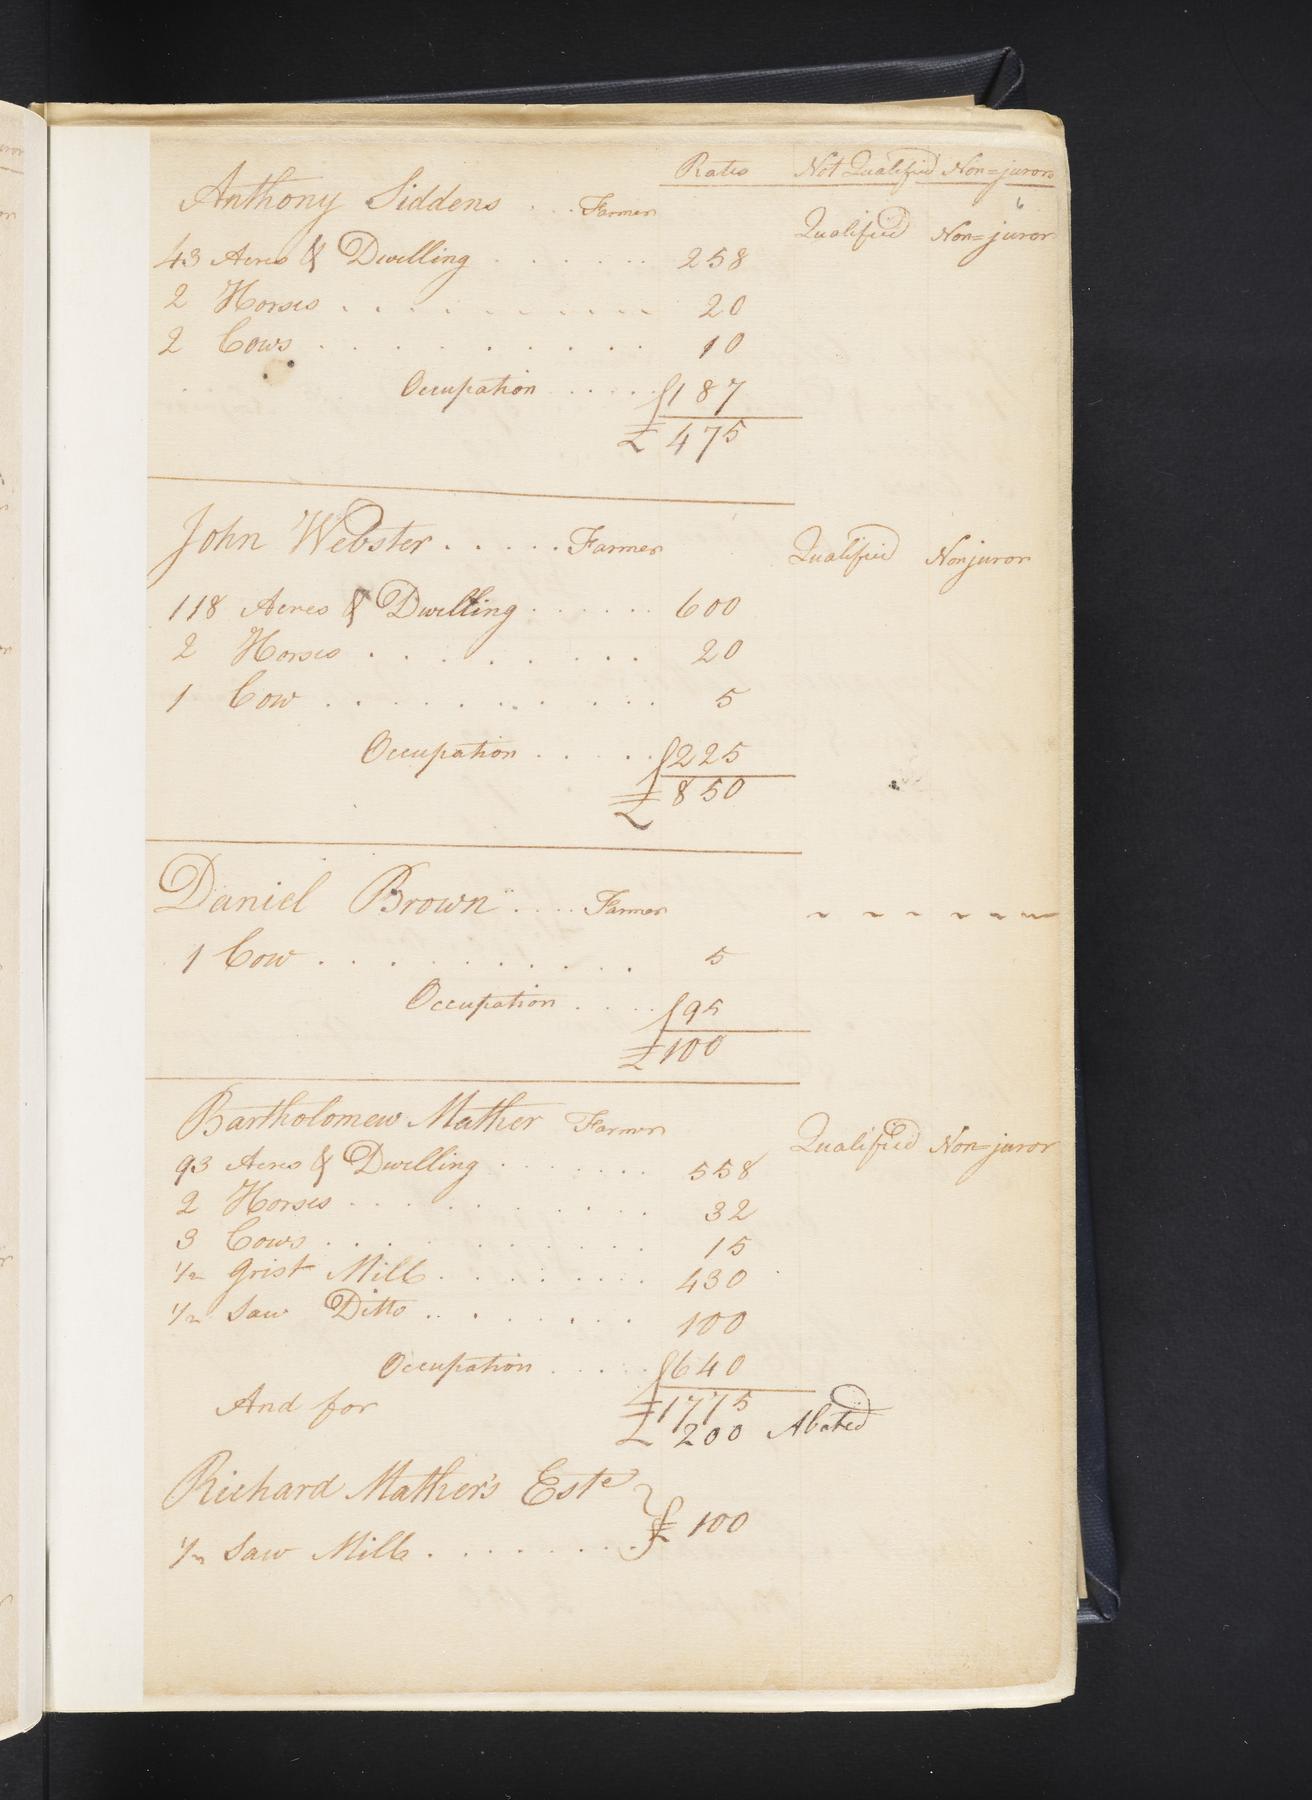 Rates Not Qualified Non=jurors
6
Anthony Siddens . . . Farmer
Qualified Non=juror
43 Acres & Dwelling . . . . . . . 258
2 Horses . . . . . . . . . . 20
2 Cows . . . . . . . . . . 10
Occupation . . . . . 187
£ 475
John Webster . . . . . . Farmer Qualified Nonjuror
118 Acres & Dwelling . . . . . . 600
2 Horses . . . . . . . . . 20
1 Cow . . . . . . . . . . 5
Occupation . . . . . 225
£ 850
Daniel Brown . . . . Farmer ~ ~ ~ ~ ~ ~
1 Cow . . . . . . . . . 5
Occupation . . . . 95
£ 100
Bartholomew Mather Farmer Qualified Non=juror
93 Acres & Dwelling . . . . . . . 558
2 Horses . . . . . . . . . . 32
3 Cows . . . . . . . . . . 15
1/2 Grist Mill . . . . . . . . 430
1/2 Saw Ditto . . . . . . . . 100
Occupation . . . . . 640
And for £ 1775
£ 200 Abated
Richard Mather's Este
£ 100
1/2 Saw Mill . . . . . . . .